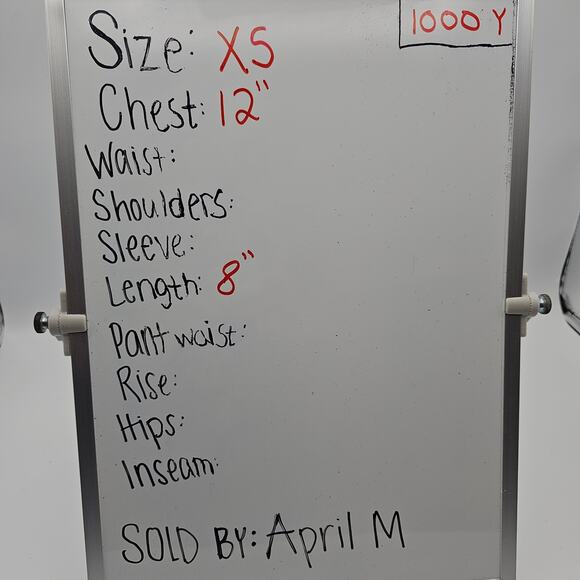 1000 Y
Size: XS
Chest: 12"
Waist:
Shoulders:
Sleeve:
Length: 8"
Pant waist:
Rise:
Hips:
Inseam:
SOLD BY: April M